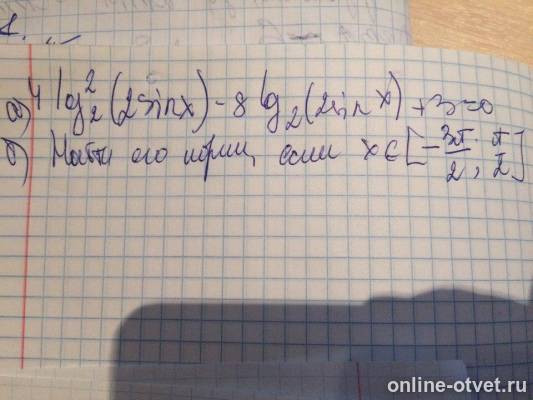 1.
а) 4 log₂²(2sinx) - 8 log₂(2sinx) + 3=0
б) Найти его корни, если x∈[-3π/2; π/2]
online-otvet.ru